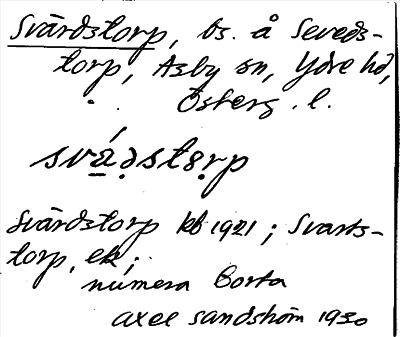 Svärdstorp, bs. å Seveds-
torp, Asby sn, Ydre hd,
Österg. l.
svá̱ḍstɞṛp
Svärdstorp kb 1921; Svarts-
torp, ek;
numera borta
Axel Sandström 1930